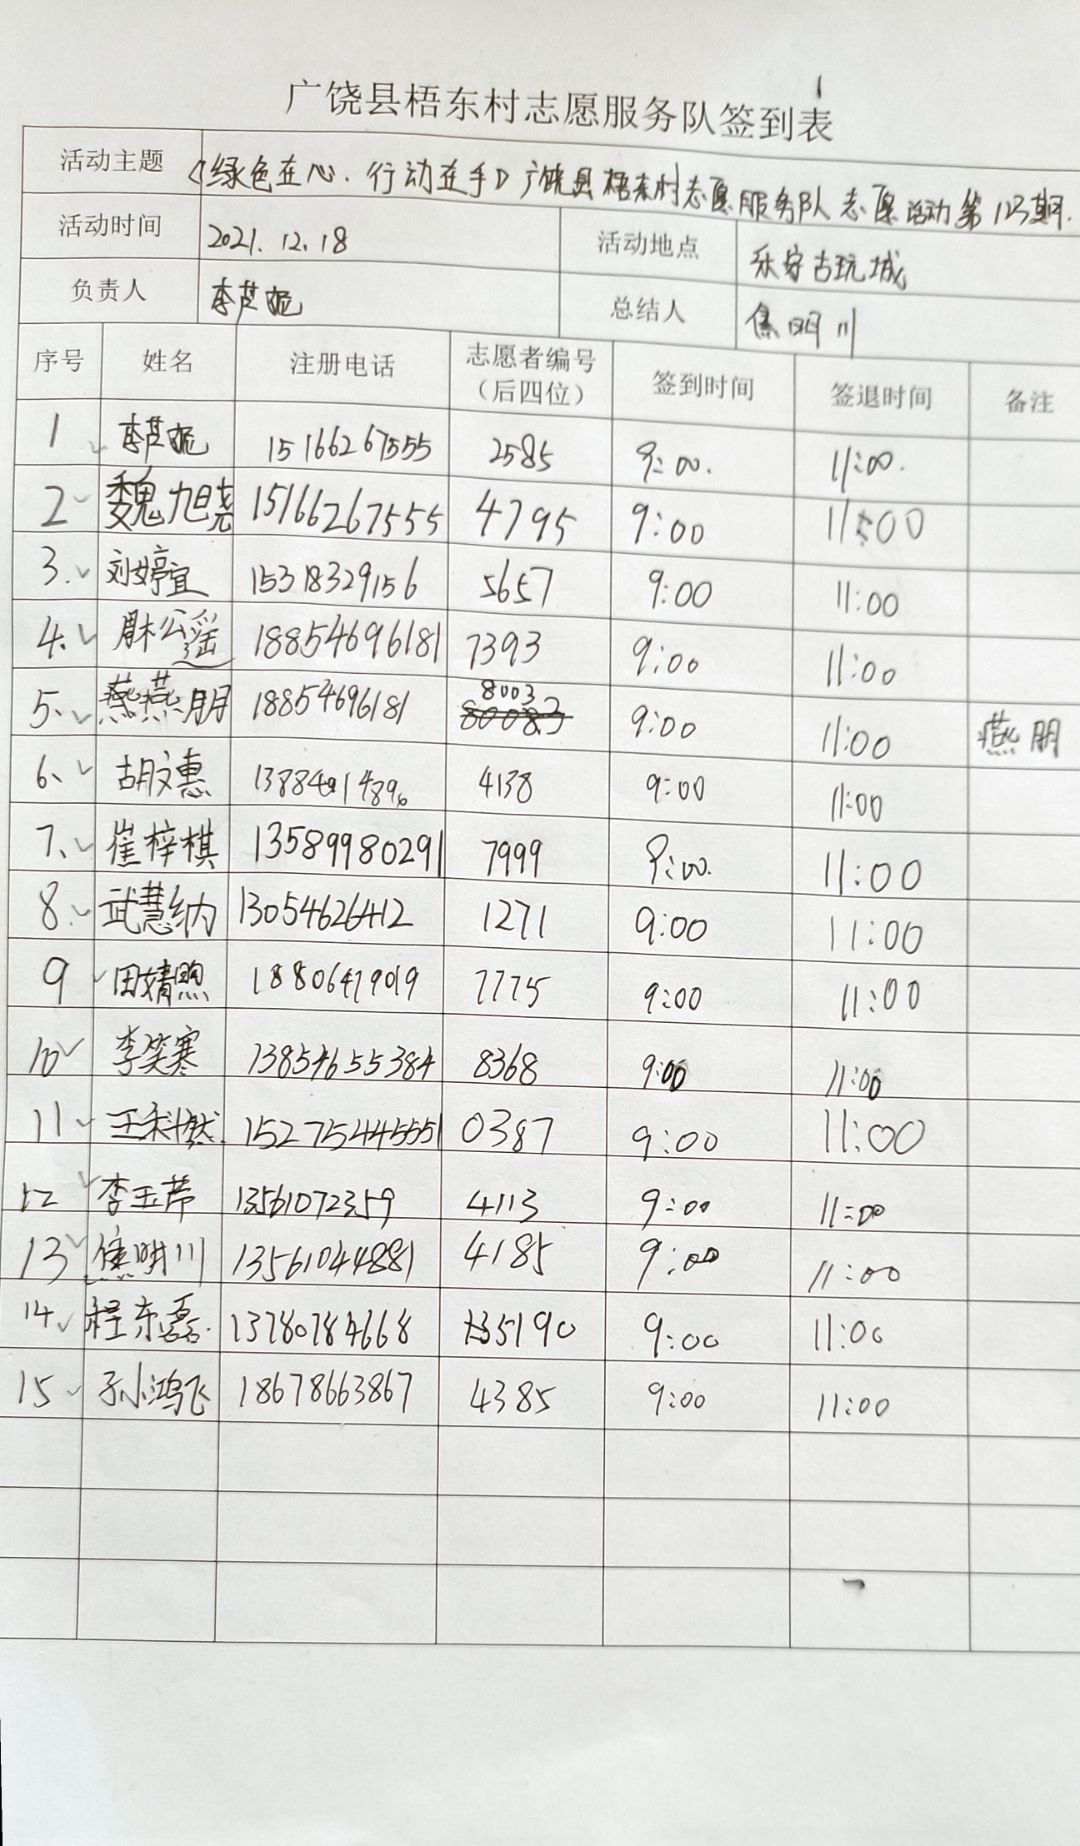 广饶县梧东村志愿服务队签到表
活动主题 《绿色在心.行动在手》广饶县梧东村志愿服务队志愿活动第123期.
活动时间 2021.12.18 活动地点 乐安古玩城
负责人 李芝妮 总结人 焦明川
序号 姓名 注册电话 志愿者编号（后四位） 签到时间 签退时间 备注
1 李芝妮 15166267555 2585 9:00. 11:00.
2 魏旭尧 15166267555 4795 9:00 11:00
3. 刘婷宜 15318329156 5657 9:00 11:00
4. 公瑶 18854696181 7393 9:00 11:00
5. 燕朋 18854696181 8003 9:00 11:00 燕朋
6、 胡文惠 1388491489 4138 9:00 11:00
7、 崔梓棋 13589980291 7999 9:00. 11:00
8. 武慧纳 13054626412 1271 9:00 11:00
9 田婧煦 18806479019 7775 9:00 11:00
10 李笑寒 13854655384 8368 9:00 11:00
11 王科然 15275445551 0387 9:00 11:00
12 李玉芾 13561072359 4113 9:00 11:00
13 焦明川 13561044881 4185 9:00 11:00
14. 程东磊. 13780784668 5190 9:00 11:00
15 孙鸿飞 18678663867 4385 9:00 11:00